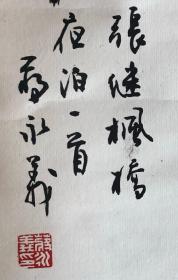 張继楓橋
夜泊一首
蒋永義